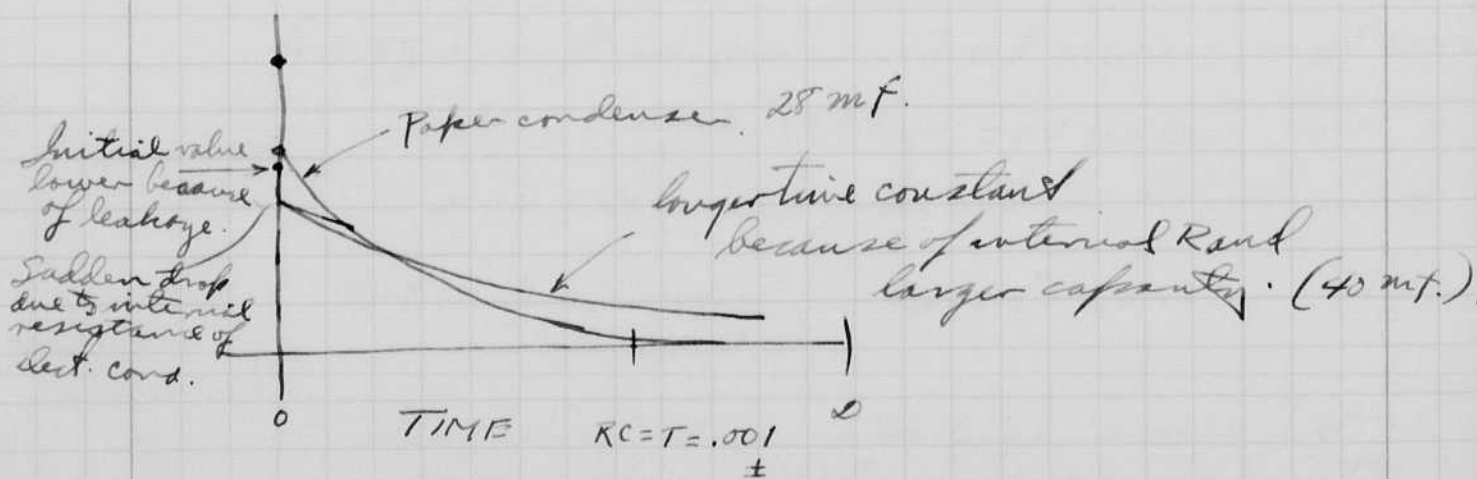 Paper condenser. 28 mf.
Initial value
lower because
of leakage.
longer time constant
because of internal R and
larger capacity. (40 mf.)
Sudden drop
due to internal
resistance of
elect. cond.
0
TIME
RC=T=.001
±